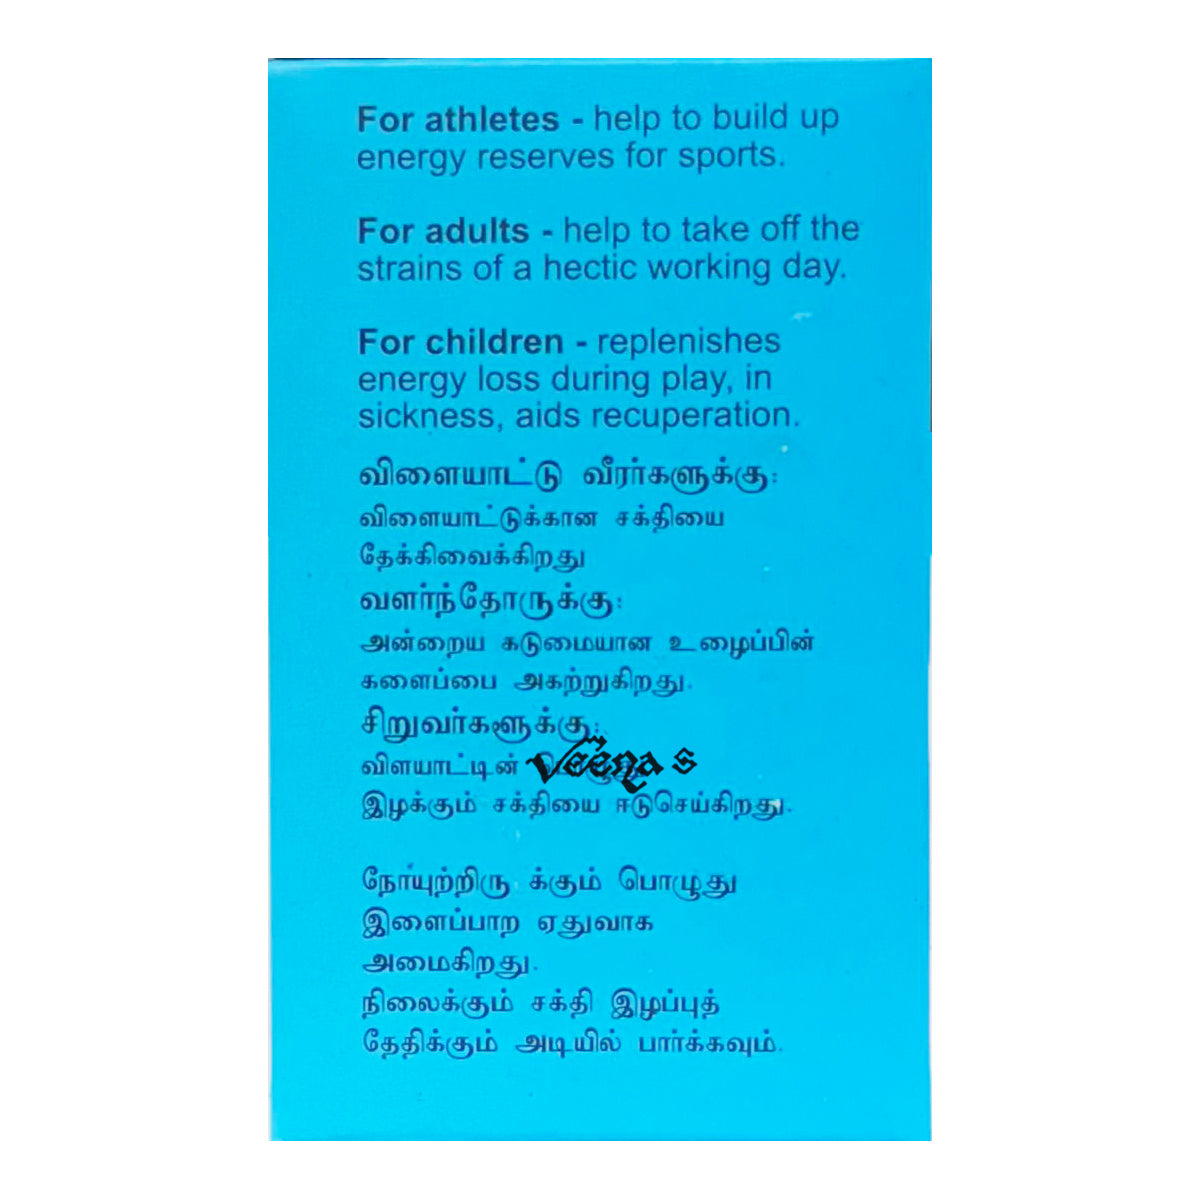 For athletes - help to build up
energy reserves for sports.
For adults - help to take off the
strains of a hectic working day.
For children - replenishes
energy loss during play, in
sickness, aids recuperation.
விளையாட்டு வீரர்களுக்கு:
விளையாட்டுக்கான சக்தியை
தேக்கிவைக்கிறது
வளர்ந்தோருக்கு:
அன்றைய கடுமையான உழைப்பின்
களைப்பை அகற்றுகிறது.
சிறுவர்களூக்கு:
விளயாட்டின்
Veena s
இழக்கும் சக்தியை ஈடுசெய்கிறது.
நோய்யுற்றிரு க்கும் பொழுது
இளைப்பாற ஏதுவாக
அமைகிறது.
நிலைக்கும் சக்தி இழப்புத்
தேதிக்கும் அடியில் பார்க்கவும்.